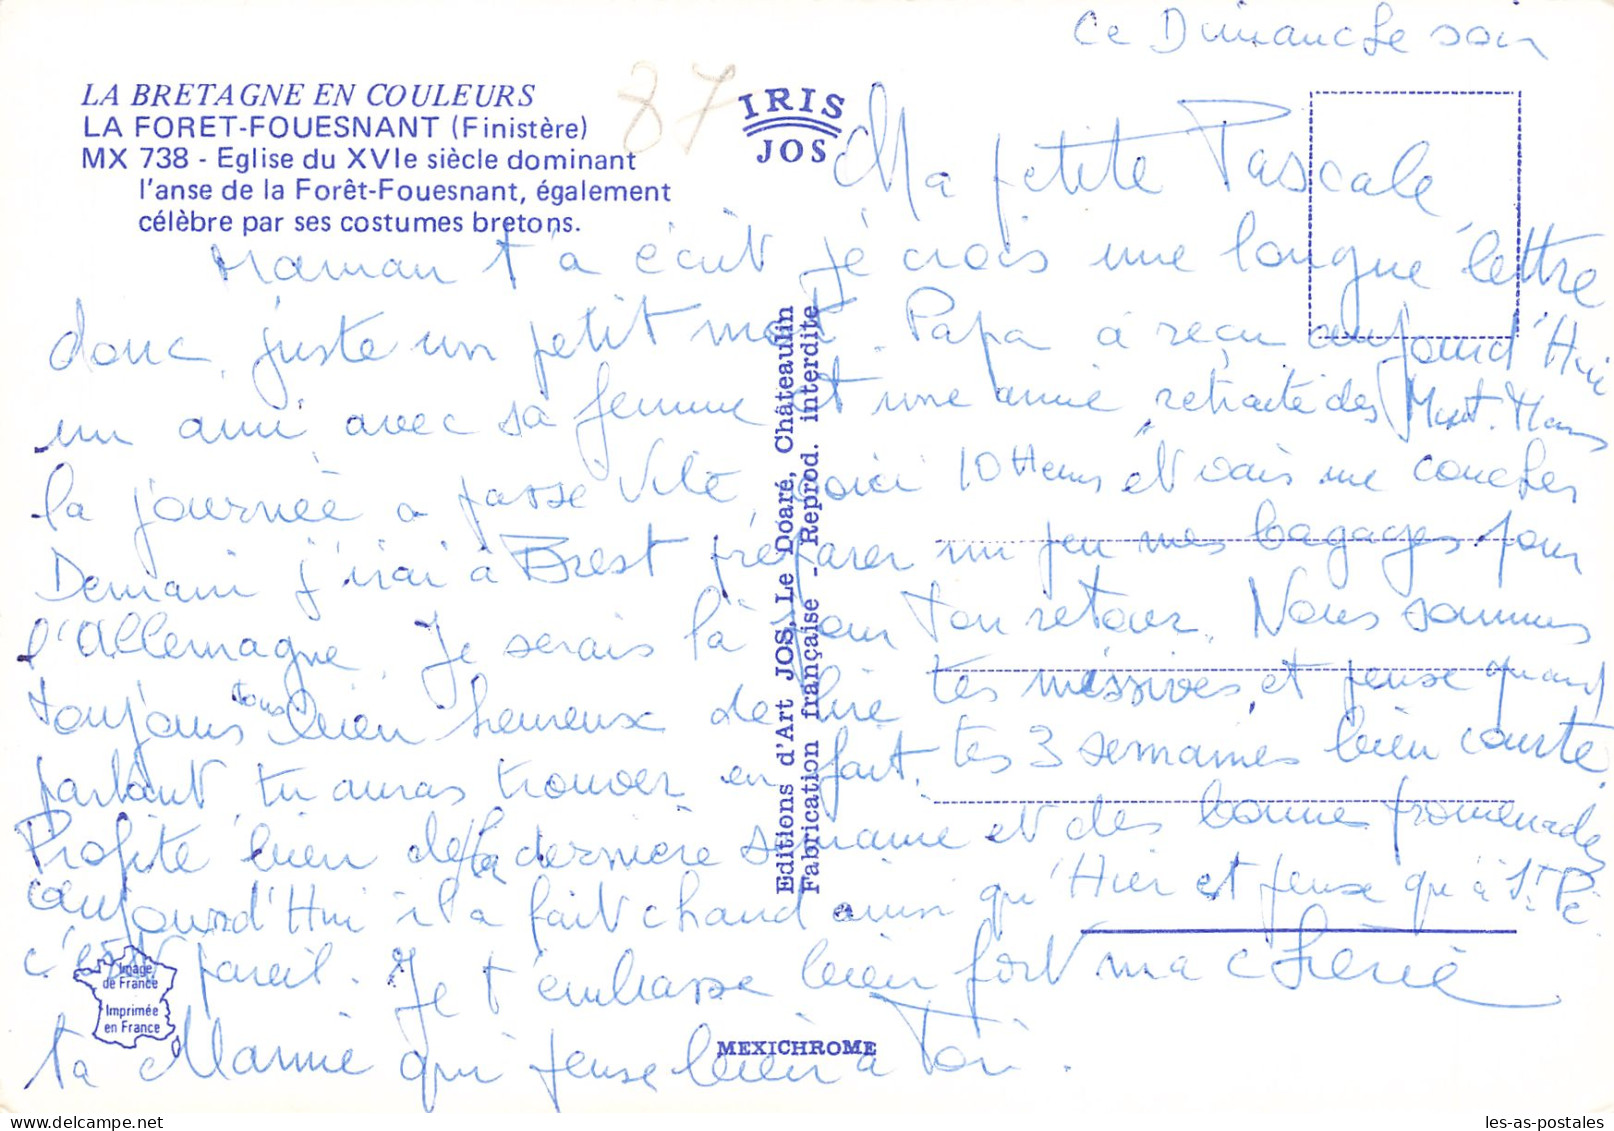 Ce Dimanche soir
LA BRETAGNE EN COULEURS
LA FORET-FOUESNANT (Finistère)
MX 738 - Eglise du XVIe siècle dominant
l'anse de la Forêt-Fouesnant, également
célèbre par ses costumes bretons.
87
IRIS
JOS
Ma petite Pascale
Maman t'a écrit je crois une longue lettre
donc juste un petit mot. Papa a reçu aujourd'Hui
un ami avec sa femme et une amie, retraité des
la journée a passé vite, voici 10 Heures et vais me coucher
Demain j'irai à Brest préparer un peu mes bagages pour
l'Allemagne. Je serais là pour ton retour. Nous sommes
toujours tous bien heureux de lire tes missives, et pense quand
partant, tu auras trouver en fait, tes 3 semaines bien courte
Profite bien de la dernière semaine et des bonnes promenades
aujourd'Hui il a fait chaud ainsi qu'Hier et pense qu'à St. Pé
c'est pareil. Je t'embrasse bien fort ma chérie
ta Mamie qui pense bien à Toi.
Editions d'Art JOS, Le Doaré, Châteaulin
Fabrication française - Reprod. interdite
Image
de France
Imprimée
en France
MEXICHROME
delcampe.net
les-as-postales